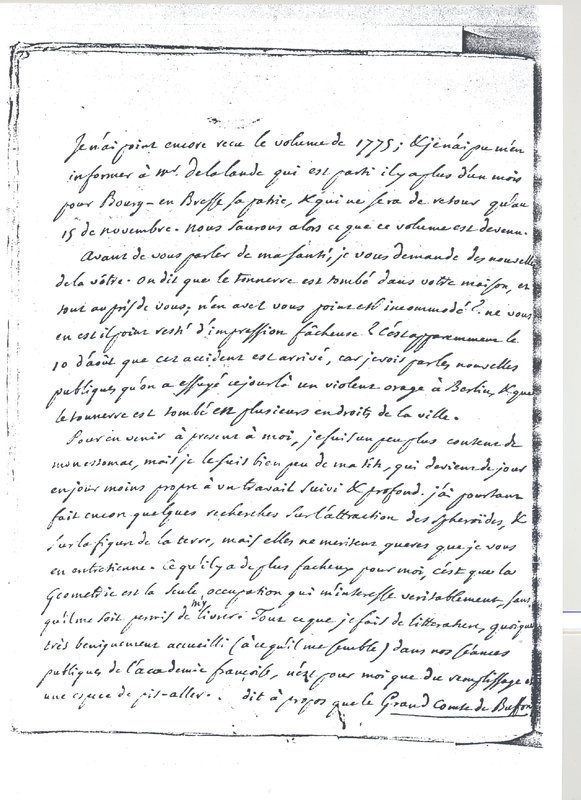 Je n'ai point encore recu le volume de 1775; & je n'ai pu m'en
informer à mr. de la lande qui est parti il y a plus d'un mois
pour Bourg-en Bresse sa patrie, & qui ne sera de retour qu'au
15 de novembre. nous saurons alors ce que ce volume est devenu.
Avant de vous parler de ma santé, je vous demande des nouvelles
de la vôtre. on dit que le tonnerre est tombé dans votre maison, et
tout auprès de vous; n'en avez vous point été incommodé? ne vous
en est il point resté d'impression fâcheuse? c'est apparemment le
10 d'août que cet accident est arrivé, car je vois par les nouvelles
publiques qu'on a essuyé ce jour là un violent orage à Berlin, & que
le tonnerre est tombé en plusieurs endroits de la ville.
Pour en venir à present à moi, je suis un peu plus content de
mon estomac, mais je le suis bien peu de ma tête, qui devient de jour
en jour moins propre à un travail suivi & profond. j'ai pourtant
fait encor quelques recherches sur l'attraction des spheroïdes, &
sur la figure de la terre, mais elles ne meritent gueres que je vous
en entretienne. Ce qu'il y a de plus facheux pour moi, c'est que la
Geometrie est la seule occupation qui m'interesse veritablement, sans
qu'il me soit permis de m'y livrer. Tout ce que je fais de litterature, quoique
très benignement accueilli (à ce qu'il me semble) dans nos séances
publiques de l'academie françoise, n'est pour moi que du remplissage et
une espece de pis-aller. dit à propos que le Grand Comte de Buffon